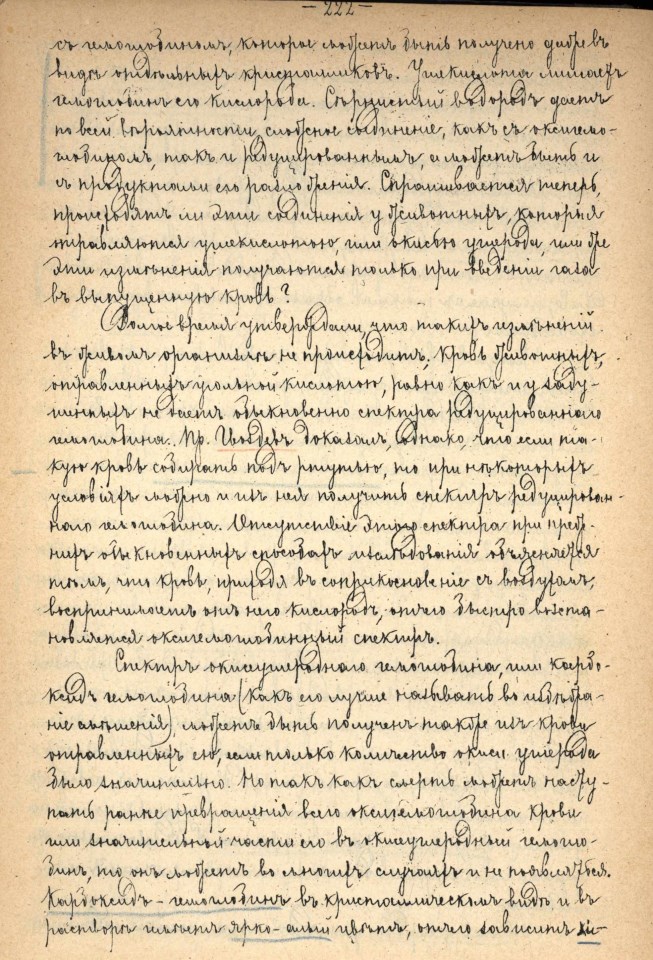 — 222 —
съ гемоглобиномъ, которое можетъ быть получено даже въ
видѣ отдѣльныхъ кристалликовъ. Углекислота лишаетъ
гемоглобинъ его кислорода. Сѣрнистый водородъ даетъ
по всей вѣроятности сложное соединеніе, какъ съ оксигемо-
глобиномъ, такъ и редуцированнымъ, а можетъ быть и
съ продуктами его разложенія. Спрашивается теперь,
происходятъ ли эти соединенія у животныхъ, которыя
отравляются углекислотою, или окисью углерода, или же
эти измѣненія получаются только при введеніи газа
въ выпущенную кровь?
Долгое время утверждали, что такихъ измѣненій
въ живомъ организмѣ не происходитъ, кровь животныхъ,
отравленныхъ угольной кислотою, равно какъ и у заду-
шенныхъ не даетъ обыкновенно спектра редуцированнаго
гемоглобина. Пр. Гвоздевъ доказалъ, однако, что если та-
кую кровь собирать подъ ртутью, то при нѣкоторыхъ
условіяхъ можно и изъ нея получить спектръ редуцирован-
наго гемоглобина. Отсутствіе этого спектра при преж-
нихъ обыкновенныхъ способахъ изслѣдованія объясняется
тѣмъ, что кровь, приходя въ соприкосновеніе съ воздухомъ,
воспринимаетъ отъ него кислородъ, отчего быстро возста-
новляется оксигемоглобинный спектръ.
Спектръ окисеуглероднаго гемоглобина, или карбо-
ксидъ гемоглобина (какъ его лучше называть во избѣжа-
ніе смѣшенія) можетъ быть полученъ также изъ крови
отравленныхъ ею, если только количество окиси углерода
было значительно. Но такъ какъ смерть можетъ насту-
пать ранѣе превращенія всего оксигемоглобина крови
или значительной части его въ окисеуглеродный гемогло-
бинъ, то онъ можетъ во многихъ случаяхъ и не появляться.
Карбоксидъ-гемоглобинъ въ кристаллическомъ видѣ и въ
растворѣ имѣетъ ярко-алый цвѣтъ, отчего зависитъ